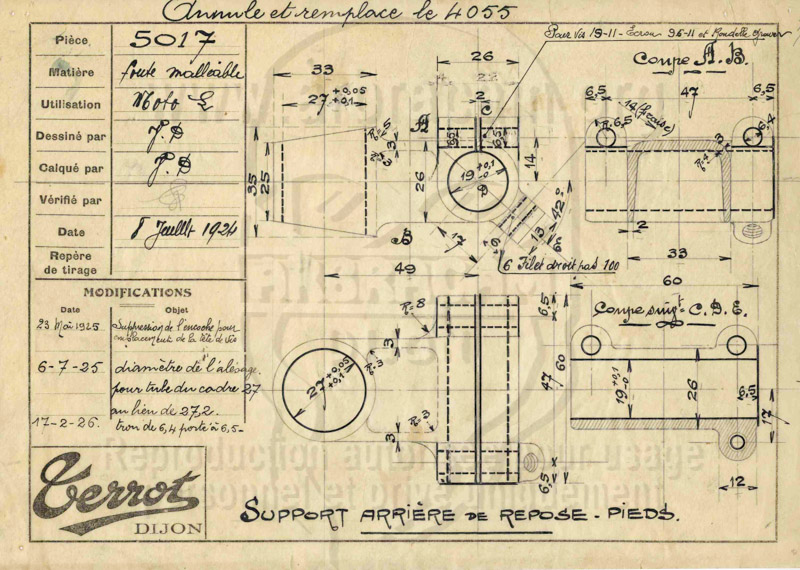 Annule et remplace le 4055
Pièce 5017
Matière fonte malléable
Utilisation Moto E
Dessiné par J.D
Calqué par J.D
Vérifié par
Date 8 Juillet 1924
Repère
de tirage
MODIFICATIONS
Date Objet
23 Mai 1925 Suppression de l'encoche pour
emplacement de la tête de vis
6-7-25 diamètre de l'alésage
pour tube du cadre 27
au lieu de 27,2.
17-2-26. tron de 6,4 porté à 6,5-
Terrot
DIJON
Pour Vis 19-11 - Ecrou 36-11 et Rondelle
Coupe A.B.
33
27 +0,05 +0,1
26
2
C
A
35
25
R=5
3
26
6,5
6,5
14
19 +0,1 -0
D
B
17
13
42
6 Filet droit pas 100
49
6,5
47
6,5
14 (fraise)
R=6,5
6,4
3
R=4
2
33
60
Coupe suivt C.D.E.
R=8
3
27 +0,05 +0,1
R=3
3
6,5
47
60
6,5
19 +0,1 -0
26
6,5
17
12
SUPPORT ARRIÈRE DE REPOSE-PIEDS.
Reproduction autorisée pour usage
personnel et privé uniquement